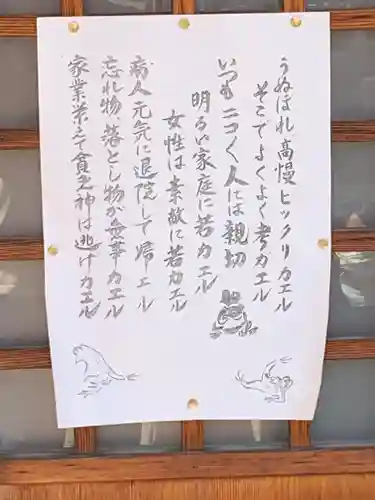 うぬぼれ高慢ヒックリカエル
そこでよくよく考カエル
いつもニコ〱人には親切
明るい家庭に若カエル
女性は素敵に若カエル
病人元気に退院して帰エル
忘れ物、落とし物が無事カエル
家業栄えて貧乏神は逃げカエル